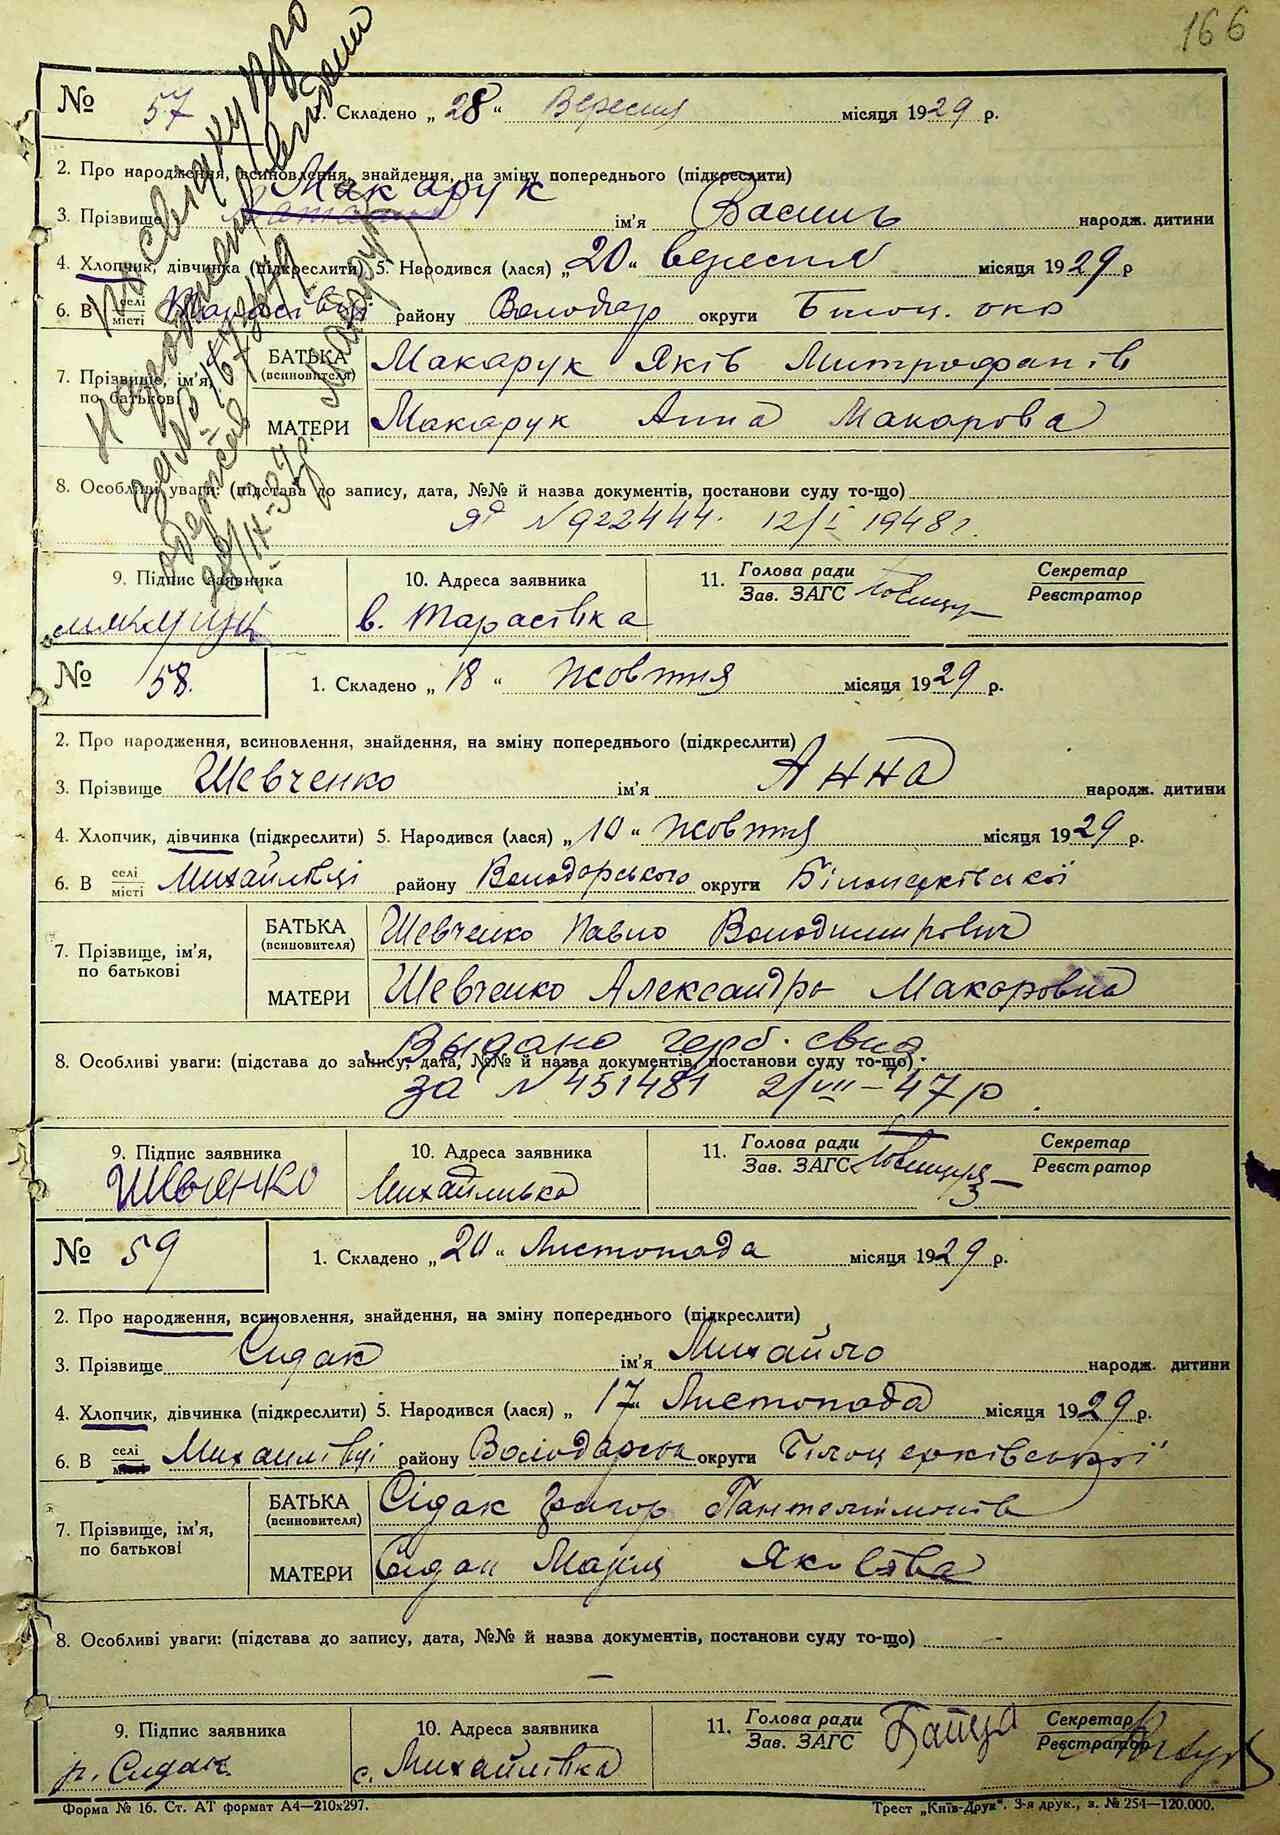 166
№ 57 1. Складено „ 28 “ Вересня місяця 1929 р.
2. Про народження, всиновлення, знайдення, на зміну попереднього (підкреслити)
3. Прізвище Макарук ім'я Василь народж. дитини
4. Хлопчик, дівчинка (підкреслити) 5. Народився (лася) „ 20 “ вересня місяця 1929 р
6. В селі/місті Тарасівці району Володар округи Білоц. окр
7. Прізвище, ім'я, по батькові
БАТЬКА (всиновителя) Макарук Яків Митрофанів
МАТЕРИ Макарук Анна Макарова
8. Особливі уваги: (підстава до запису, дата, №№ й назва документів, постанови суду то-що)
N 922444. 12/I 1948 г.
9. Підпис заявника 10. Адреса заявника 11. Голова ради Секретар
Зав. ЗАГС Реєстратор
в. Тарасівка
№ 58. 1. Складено „ 18 “ жовтня місяця 1929 р.
2. Про народження, всиновлення, знайдення, на зміну попереднього (підкреслити)
3. Прізвище Шевченко ім'я Анна народж. дитини
4. Хлопчик, дівчинка (підкреслити) 5. Народився (лася) „ 10 “ жовтня місяця 1929 р.
6. В селі/місті Михайлівці району Володарського округи Білоцерківської
7. Прізвище, ім'я, по батькові
БАТЬКА (всиновителя) Шевченко Павло Володимирович
МАТЕРИ Шевченко Александра Макаровна
Выдано герб. свид.
8. Особливі уваги: (підстава до запису, дата, №№ й назва документів, постанови суду то-що)
за N 451481 2/VII-47 р.
9. Підпис заявника 10. Адреса заявника 11. Голова ради Секретар
Зав. ЗАГС Реєстратор
Шевченко
№ 59 1. Складено „ 20 “ Листопада місяця 1929 р.
2. Про народження, всиновлення, знайдення, на зміну попереднього (підкреслити)
3. Прізвище Сидак ім'я Михайло народж. дитини
4. Хлопчик, дівчинка (підкреслити) 5. Народився (лася) „ 17 “ Листопада місяця 1929 р.
6. В селі/місті Михайлівці району Володарськ округи Білоцерківської
7. Прізвище, ім'я, по батькові
БАТЬКА (всиновителя) Сідак Григор Пантелімонів
МАТЕРИ Сідак Марія Яковлева
8. Особливі уваги: (підстава до запису, дата, №№ й назва документів, постанови суду то-що) -
—
9. Підпис заявника 10. Адреса заявника 11. Голова ради Секретар
Зав. ЗАГС Реєстратор
Сидак с. Михайлівка
Форма № 16. Ст. АТ формат А4—210х297. Трест „Київ-Друк“. 3-я друк., з. № 254—120.000.